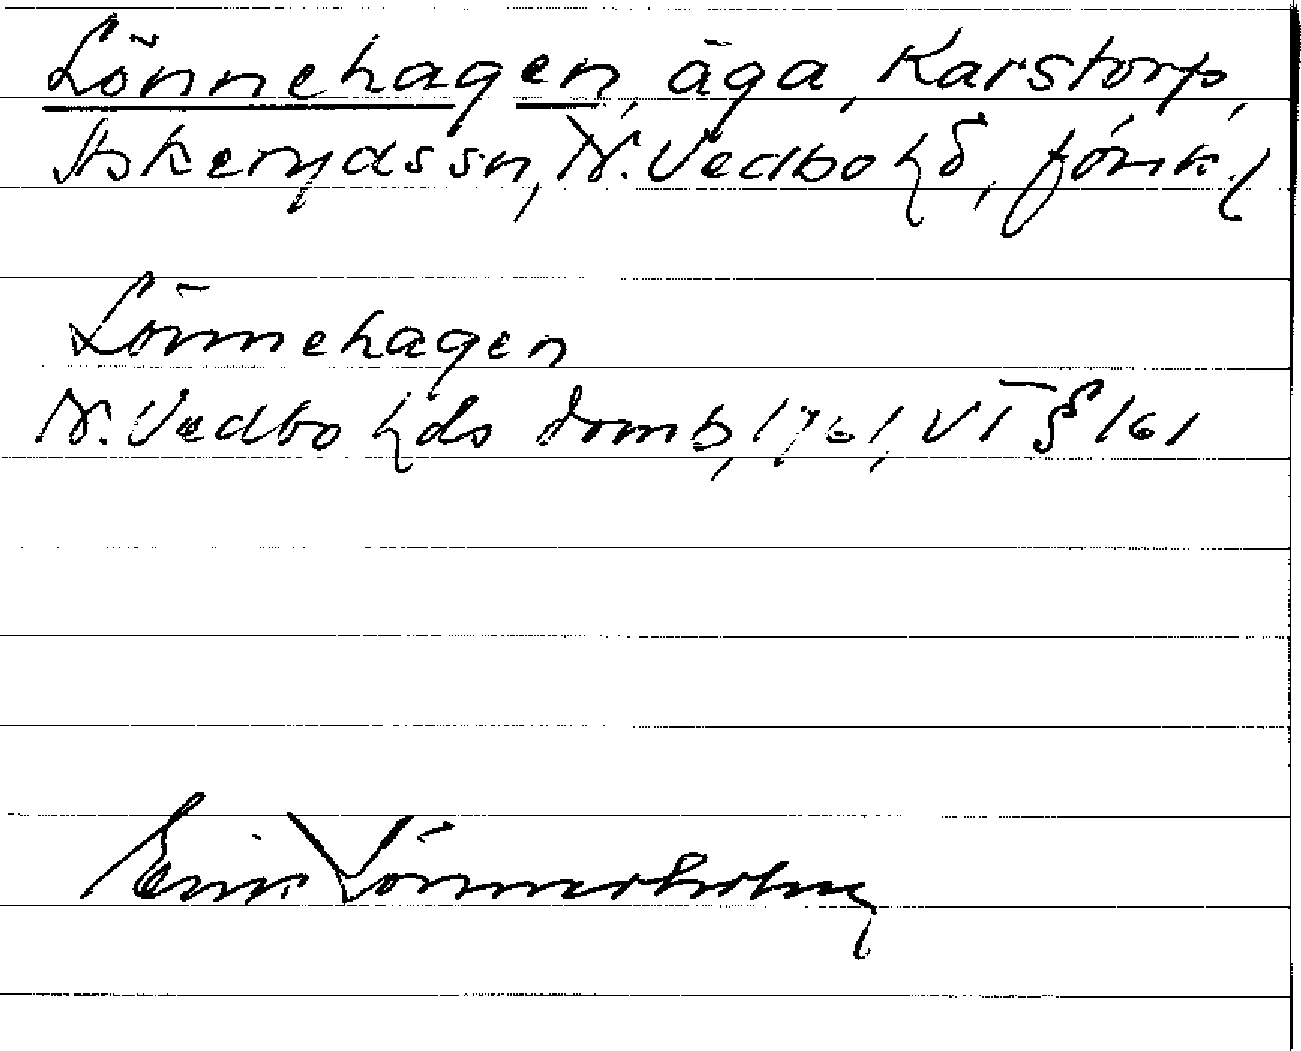 Lönnehagen, äga, Karstorp,
Askeryds sn, N. Vedbo hd, Jönk. l
Lönnehagen
N. Vedbo hds domb, 1761, VI § 161
Erik Lönnerholm